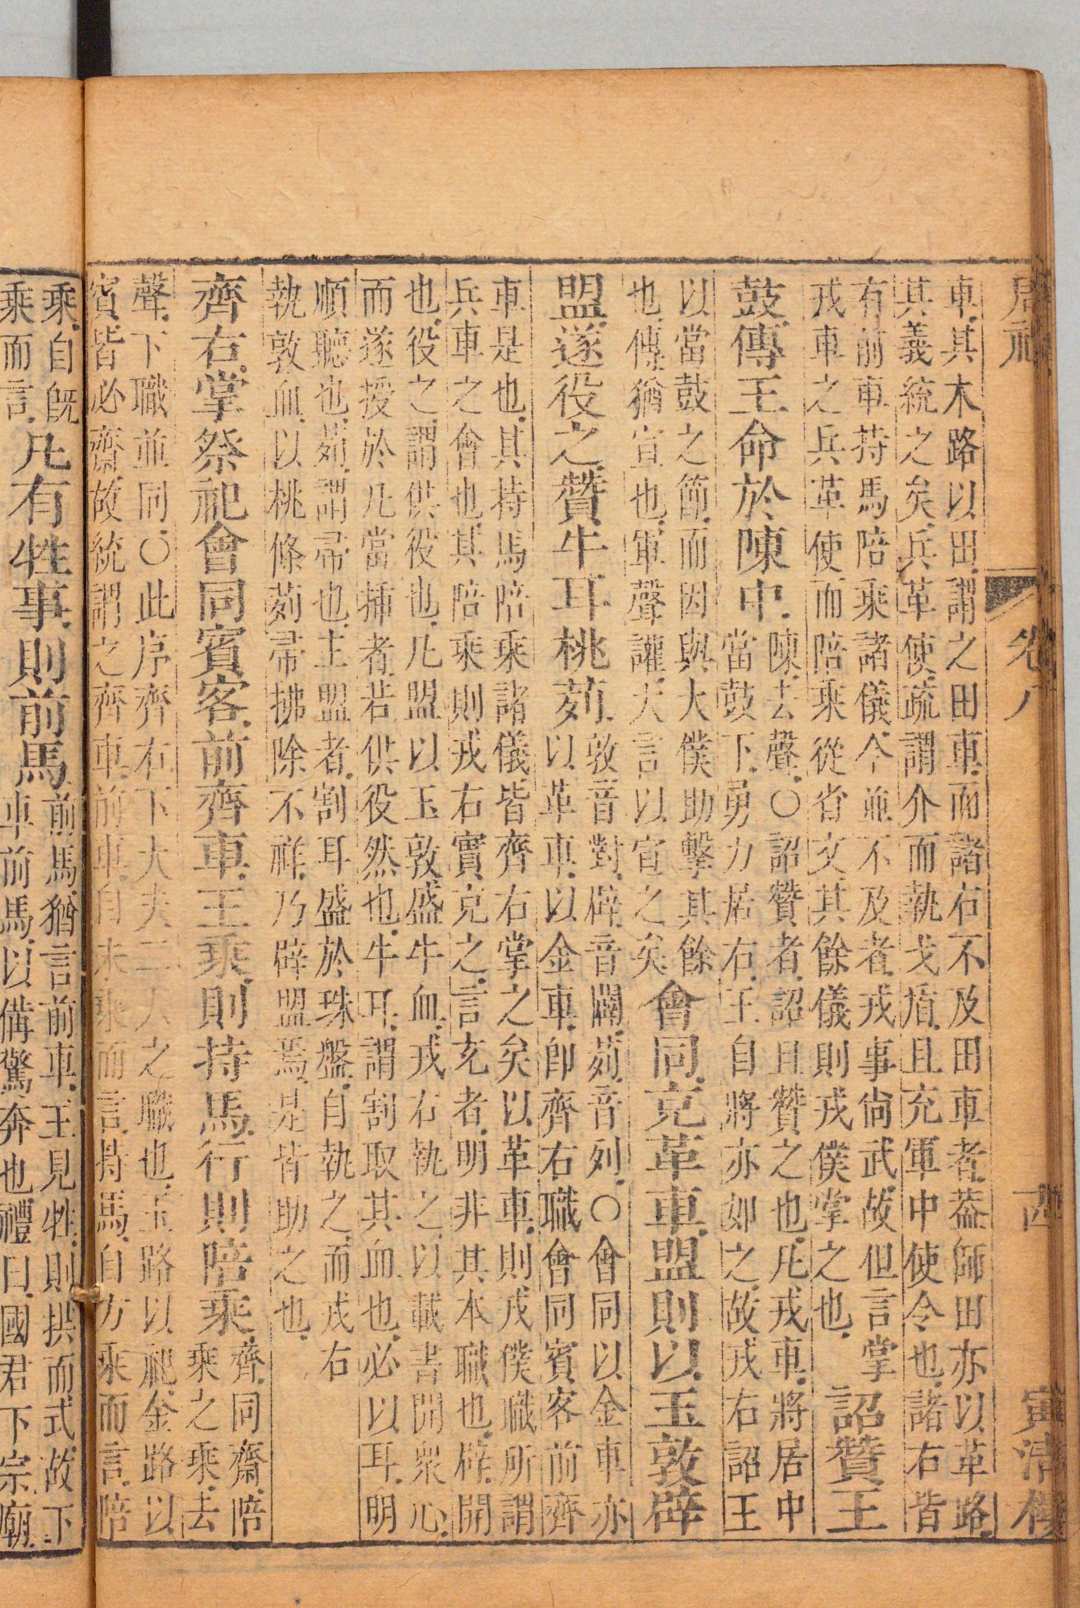 周禮 卷八 寅清樓
車其木路以田謂之田車而諸右不及田車者蓋師田亦以革路
其義統之矣兵革使疏謂介而執戈盾且充軍中使令也諸右皆
有前車持馬陪乘諸儀今並不及者戎事尚武故但言掌
戎車之兵革使而陪乘從省文其餘儀則戎僕掌之也
詔贊王
鼓傳王命於陳中
陳去聲○詔贊者詔且贊之也凡戎車將居中
當鼓下勇力居右王自將亦如之故戎右詔王
以當鼓之節而因與大僕助擊其餘
也傳猶宣也軍聲讙大言以宣之矣
會同充革車盟則以玉敦辟
盟遂役之贊牛耳桃茢
敦音對辟音闢茢音列○會同以金車亦
以革車以金車卽齊右職會同賓客前齊
車是也其持馬陪乘諸儀皆齊右掌之矣以革車則戎僕職所謂
兵車之會也其陪乘則戎右實充之言充者明非其本職也辟開
也役之謂供役也凡盟以玉敦盛牛血戎右執之以載書開衆心
而遂授於凡當揷者若供役然也牛耳謂割取其血也必以耳明
順聽也茢謂帚也主盟者割耳盛於珠盤自執之而戎右
執敦血以桃條茢帚拂除不祥乃辟盟焉是皆助之也
齊右掌祭祀會同賓客前齊車王乘則持馬行則陪乘
齊同齋陪
乘之乘去
聲下職並同○此序齊右下大夫二人之職也玉路以祀金路以
賓皆必齋故統謂之齊車前車自未乘而言持馬自方乘而言陪
乘自旣
乘而言
凡有牲事則前馬
前馬猶言前車王見牲則拱而式故下
車前馬以備驚奔也禮曰國君下宗廟